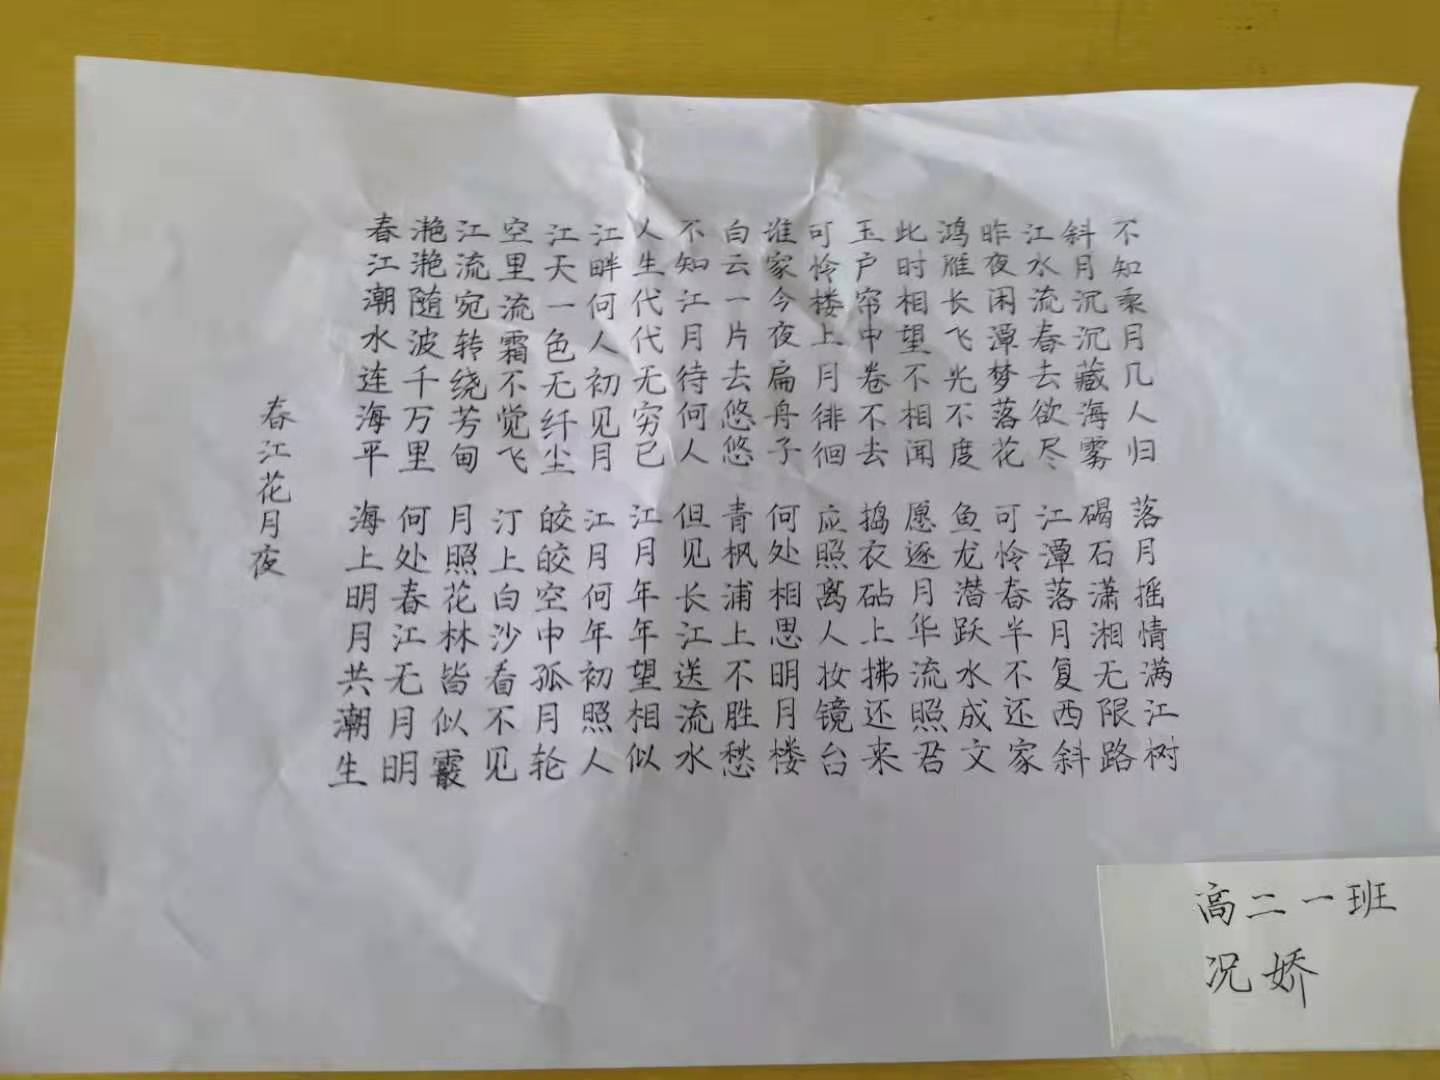 春江花月夜
春江潮水连海平 海上明月共潮生
滟滟随波千万里 何处春江无月明
江流宛转绕芳甸 月照花林皆似霰
空里流霜不觉飞 汀上白沙看不见
江天一色无纤尘 皎皎空中孤月轮
江畔何人初见月 江月何年初照人
人生代代无穷已 江月年年望相似
不知江月待何人 但见长江送流水
白云一片去悠悠 青枫浦上不胜愁
谁家今夜扁舟子 何处相思明月楼
可怜楼上月徘徊 应照离人妆镜台
玉户帘中卷不去 捣衣砧上拂还来
此时相望不相闻 愿逐月华流照君
鸿雁长飞光不度 鱼龙潜跃水成文
昨夜闲潭梦落花 可怜春半不还家
江水流春去欲尽 江潭落月复西斜
斜月沉沉藏海雾 碣石潇湘无限路
不知乘月几人归 落月摇情满江树
高二一班
况娇